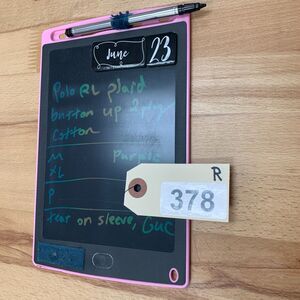 June 23
Polo RL plaid
button up
Cotton
M
XL Purple
P
tear on sleeve, GUC
R
378